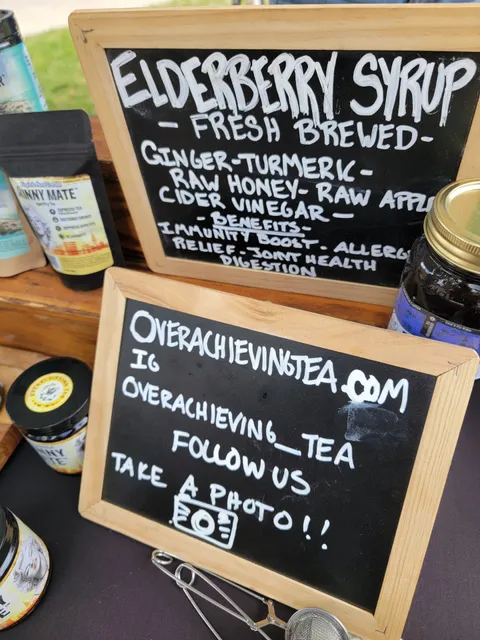 ELDERBERRY SYRUP
- FRESH BREWED -
GINGER - TURMERIC -
RAW HONEY - RAW APPLE
CIDER VINEGAR -
- BENEFITS -
IMMUNITY BOOST - ALLERG
RELIEF - JOINT HEALTH
DIGESTION
OVERACHIEVINGTEA.COM
IG
OVERACHIEVING_TEA
FOLLOW US
TAKE A PHOTO!!
NNY MATE
NNY
TE